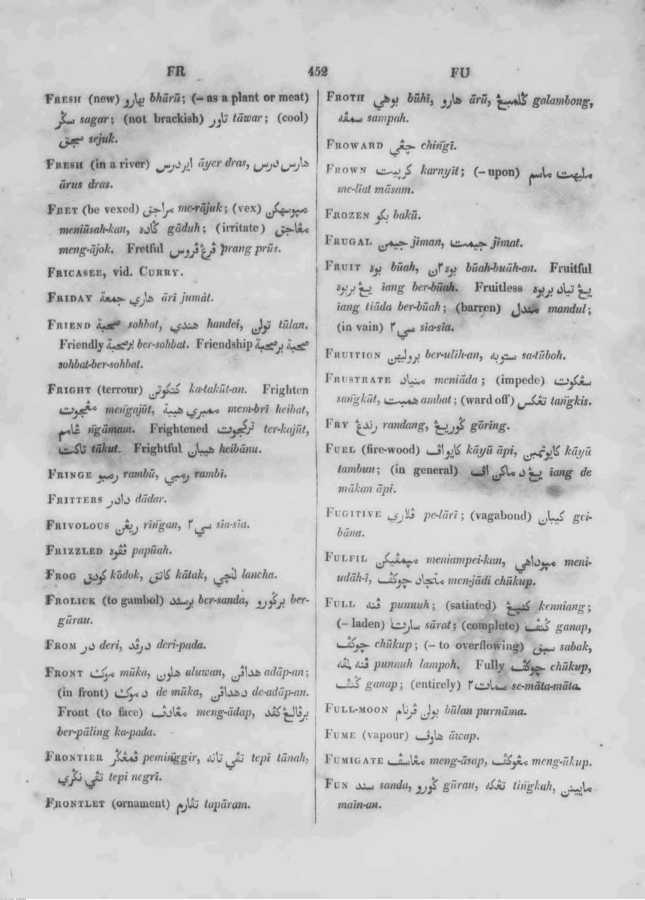 FR
452
FU
FRESH (new) بهارو bhārū; (– as a plant or meat)
سگر sagar; (not brackish) تاور tāwar; (cool)
sejuk.
FRESH (in a river) اير درس āyer dras, هارس درس
ārus dras.
FRET (be vexed) مراجق me-rājuk; (vex)
meniūsah-kan, گاده gāduh; (irritate)
meng-ājok. Fretful ڤرڠ ڤروس prang prūs.
FRICASEE, vid. CURRY.
FRIDAY هاري جمعة āri jumāt.
FRIEND صحبة sohbat, هندي handei, تولن tūlan.
Friendly برصحبة ber-sohbat. Friendship صحبة برصحبة
sohbat-ber-sohbat.
FRIGHT (terrour) ka-takūt-an. Frighten
mengajūt, ممبري هيبة mem-brī heibat,
ngāmam. Frightened ter-kajūt,
تاكت tākut. Frightful هيبان heibānu.
FRINGE رمبو rambū, رمبي rambi.
FRITTERS دادر dādar.
FRIVOLOUS ريڠن ringan, سي٢ sia-sia.
FRIZZLED papūah.
FROG كودق kōdok, كاتق kātak, لنچي lancha.
FROLICK (to gambol) برسند ber-sanda, برگورو ber-
gūrau.
FROM در deri, درڤد deri-pada.
FRONT موك mūka, هلون uluwan, هداڤن adāp-an;
(in front) د موك de mūka, دهداڤن de-adāp-an.
Front (to face) meng-ādap,
ber-pāling ka-pada.
FRONTIER peminggir, تڤي تانه tepi tānah,
تڤي نڬري tepi negrī.
FRONTLET (ornament) تڤارم tapāram.
FROTH بوهي būhi, هارو ārū, گلمبڠ galambong,
sampah.
FROWARD چڠي chingī.
FROWN كرنييت karnyit; (– upon) مليهت ماسم
me-liat māsam.
FROZEN بكو bakū.
FRUGAL جيمن jiman, جيمت jimat.
FRUIT بوه būah, بوه٢ن būah-buāh-an. Fruitful
يڠ بربوه iang ber-būah. Fruitless يڠ تياد بربوه
iang tiāda ber-būah; (barren) مندل mandul;
(in vain) سي٢ sia-sia.
FRUITION بروليهن ber-ulih-an, ستوبه sa-tūboh.
FRUSTRATE منياد meniāda; (impede) سڠكوت
sangkūt, همبت ambat; (ward off) تڠكس tangkis.
FRY رندڠ randang, گوريڠ gōring.
FUEL (fire-wood) كايواڤ kāyū āpi, كايوتمبن kāyū
tambun; (in general) يڠ د ماكن اڤ iang de
mākan āpi.
FUGITIVE ڤلاري pe-lārī; (vagabond) گيبان gei-
bāna.
FULFIL meniampei-kan, meni-
udāh-ī, منجاد چوكڤ men-jādi chūkup.
FULL ڤنه punnuh; (satiated) كنيڠ kenniang;
(– laden) سارت sārat; (complete) گنڤ ganap,
چوكڤ chūkup; (– to overflowing) سبق sabak,
ڤنه لمڤه punnuh lampoh. Fully چوكڤ chūkup,
گنڤ ganap; (entirely) سمات٢ se-māta-māta.
FULL-MOON بولن ڤرنام būlan purnāma.
FUME (vapour) هاوڤ āwap.
FUMIGATE مڠاسڤ meng-āsap, مڠوكڤ meng-ūkup.
FUN سند sanda, گورو gūrau, تڠكه tingkah, مايينن
māin-an.